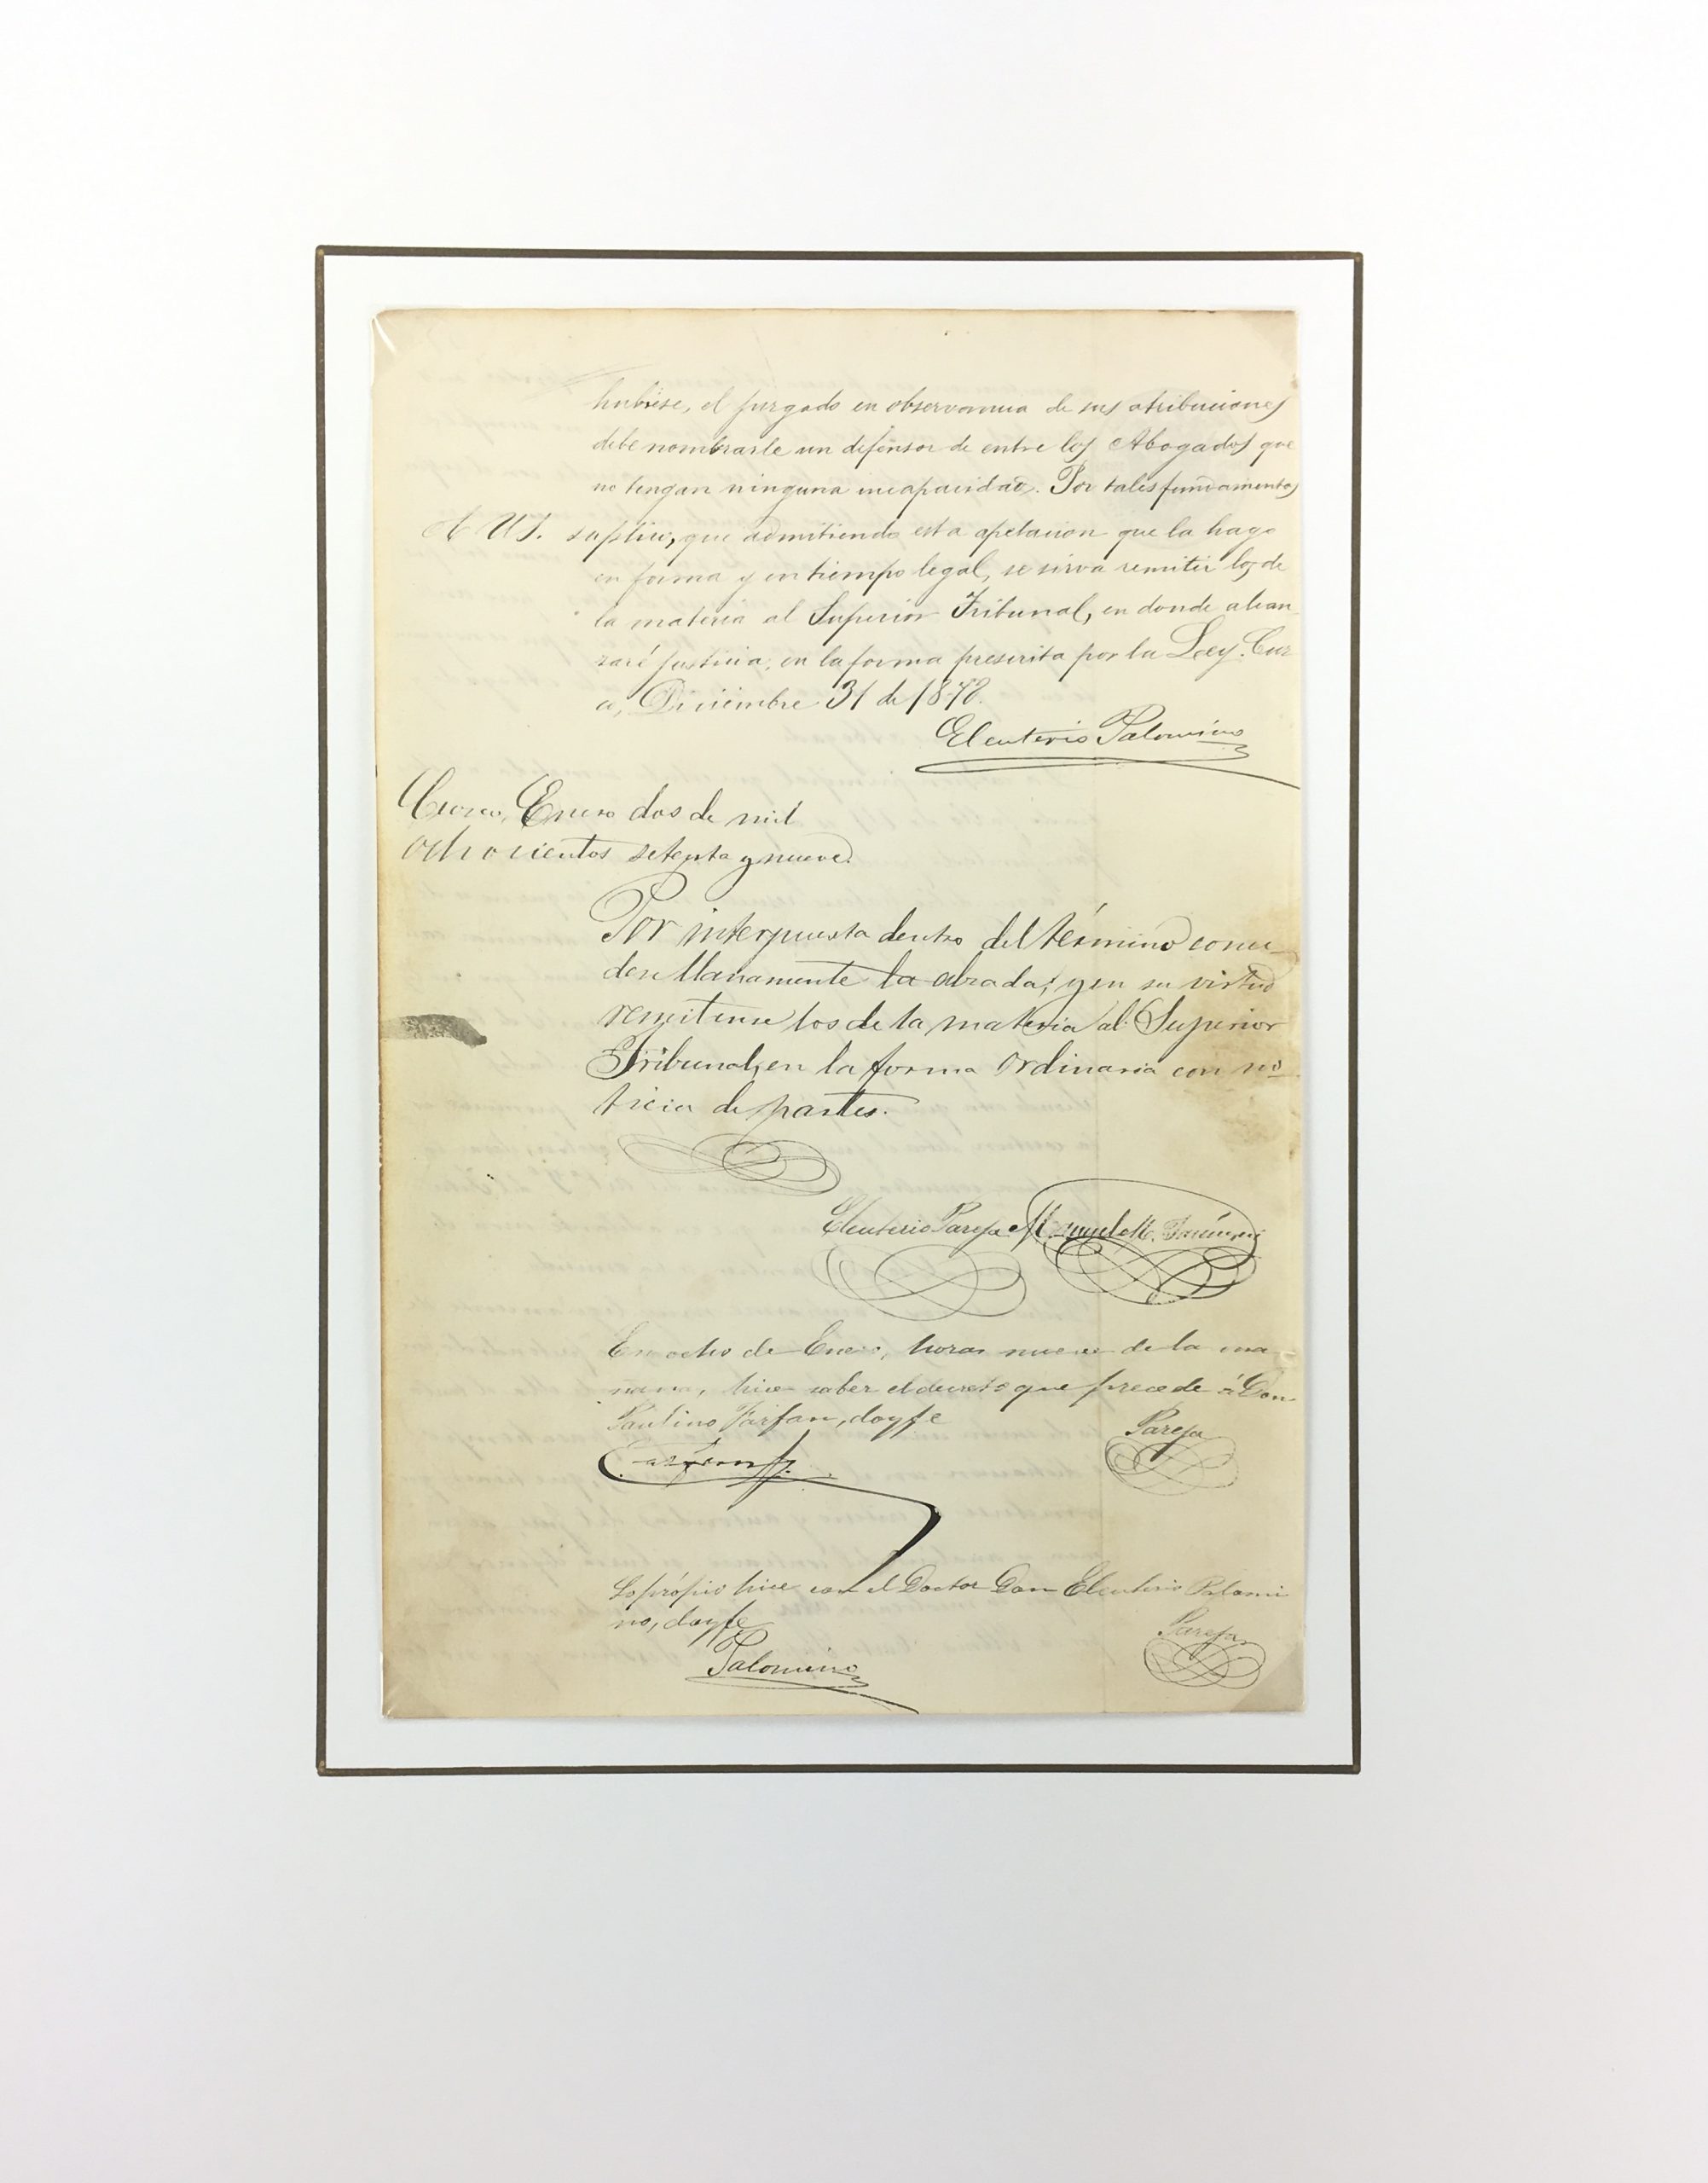 hubiese, el jusgado en observancia de sus atribuciones
debe nombrarle un defensor de entre los Abogados que
no tengan ninguna incapacidad. Por tales fundamentos
A US. suplico, que admitiendo esta apelacion que la hago
en forma y en tiempo legal, se sirva remitir los de
la materia al Superior Tribunal, en donde alcan
zaré justicia, en la forma prescrita por la Ley. Cuz
co, Diciembre 31 de 1878.
Eleuterio Palomino
Cuzco, Enero dos de mil
ochocientos setenta y nueve.
Por interpuesta dentro del término conce
dese llanamente la alzada; y en su virtud
remitanse los de la materia al Superior
Tribunal, en la forma ordinaria con no
ticia de partes.
Eleuterio Pareja M. Angel M.
En ocho de Enero, horas nueve de la ma
ñana, hice saber el decreto que precede á Don
Paulino Farfan, doy fe
Pareja
Lo própio hice con el Doctor Don Eleuterio Palomi
no, doy fe
Pareja
Palomino